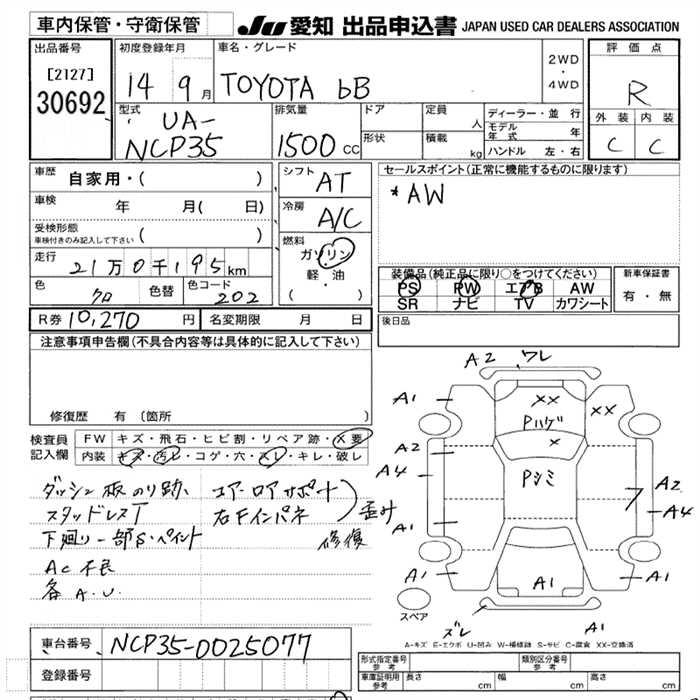 車内保管・守衛保管
JU 愛知 出品申込書 JAPAN USED CAR DEALERS ASSOCIATION
出品番号
[2127]
30692
初度登録年月
14 9月
車名・グレード
TOYOTA bB
2WD
・
4WD
評価点
R
外装 内装
C C
型式
UA-
NCP35
排気量
1500 CC
ドア
形状
定員
人
積載
kg
ディーラー・並行
モデル年式 年
ハンドル 左・右
車歴
自家用・( )
車検
年 月( 日)
受検形態
車検付きのみ記入して下さい ( )
走行
21万0千195km
色
クロ
色替
色コード
202
シフト
AT
冷房
A/C
燃料
ガソリン
軽・油
( )
セールスポイント(正常に機能するものに限ります)
*AW
装備品(純正品に限り○をつけてください)
PS PW エアB AW
SR ナビ TV カワシート
新車保証書
有・無
R券 10,270 円
名変期限 月 日
後日品
注意事項申告欄(不具合内容等は具体的に記入して下さい)
修復歴 有(箇所 )
検査員
記入欄
FW キズ・飛石・ヒビ割・リペア跡・X要
内装 キズ・汚レ・コゲ・穴・スレ・キレ・破レ
ダッシュ板のり跡
スタッドレスT
下廻り一部S・ペイント
AC不良
各A.U.
コアーロアサポート
右Fインパネ
歪み
修復
A2 ワレ
A1
XX
XX
Pハゲ
X
A2
A4
Pシミ
A2
A4
A1
A1
A1
A1
ズレ
A1
スペア
A-キズ E-エクボ U-凹み W-補修跡 S-サビ C-腐食 XX-交換済
車台番号
NCP35-0025077
登録番号
形式指定番号
参考
類別区分番号
参考
車庫証明用
参考
長さ cm
幅 cm
高さ cm